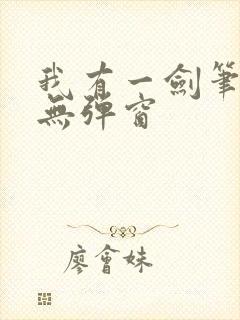 我有一劍筆
無彈窗
廖會妹